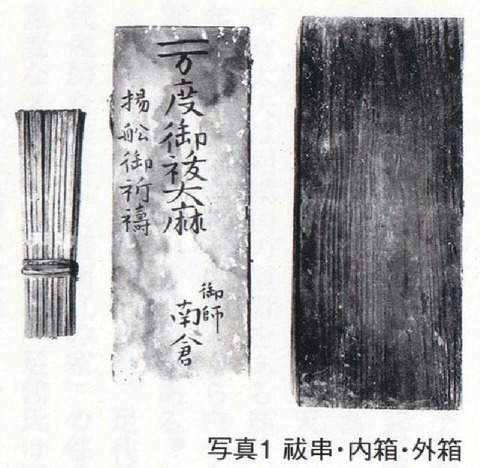 一万度御祓大麻
揚舩御祈禱
御師
南倉
写真1 祓串・内箱・外箱